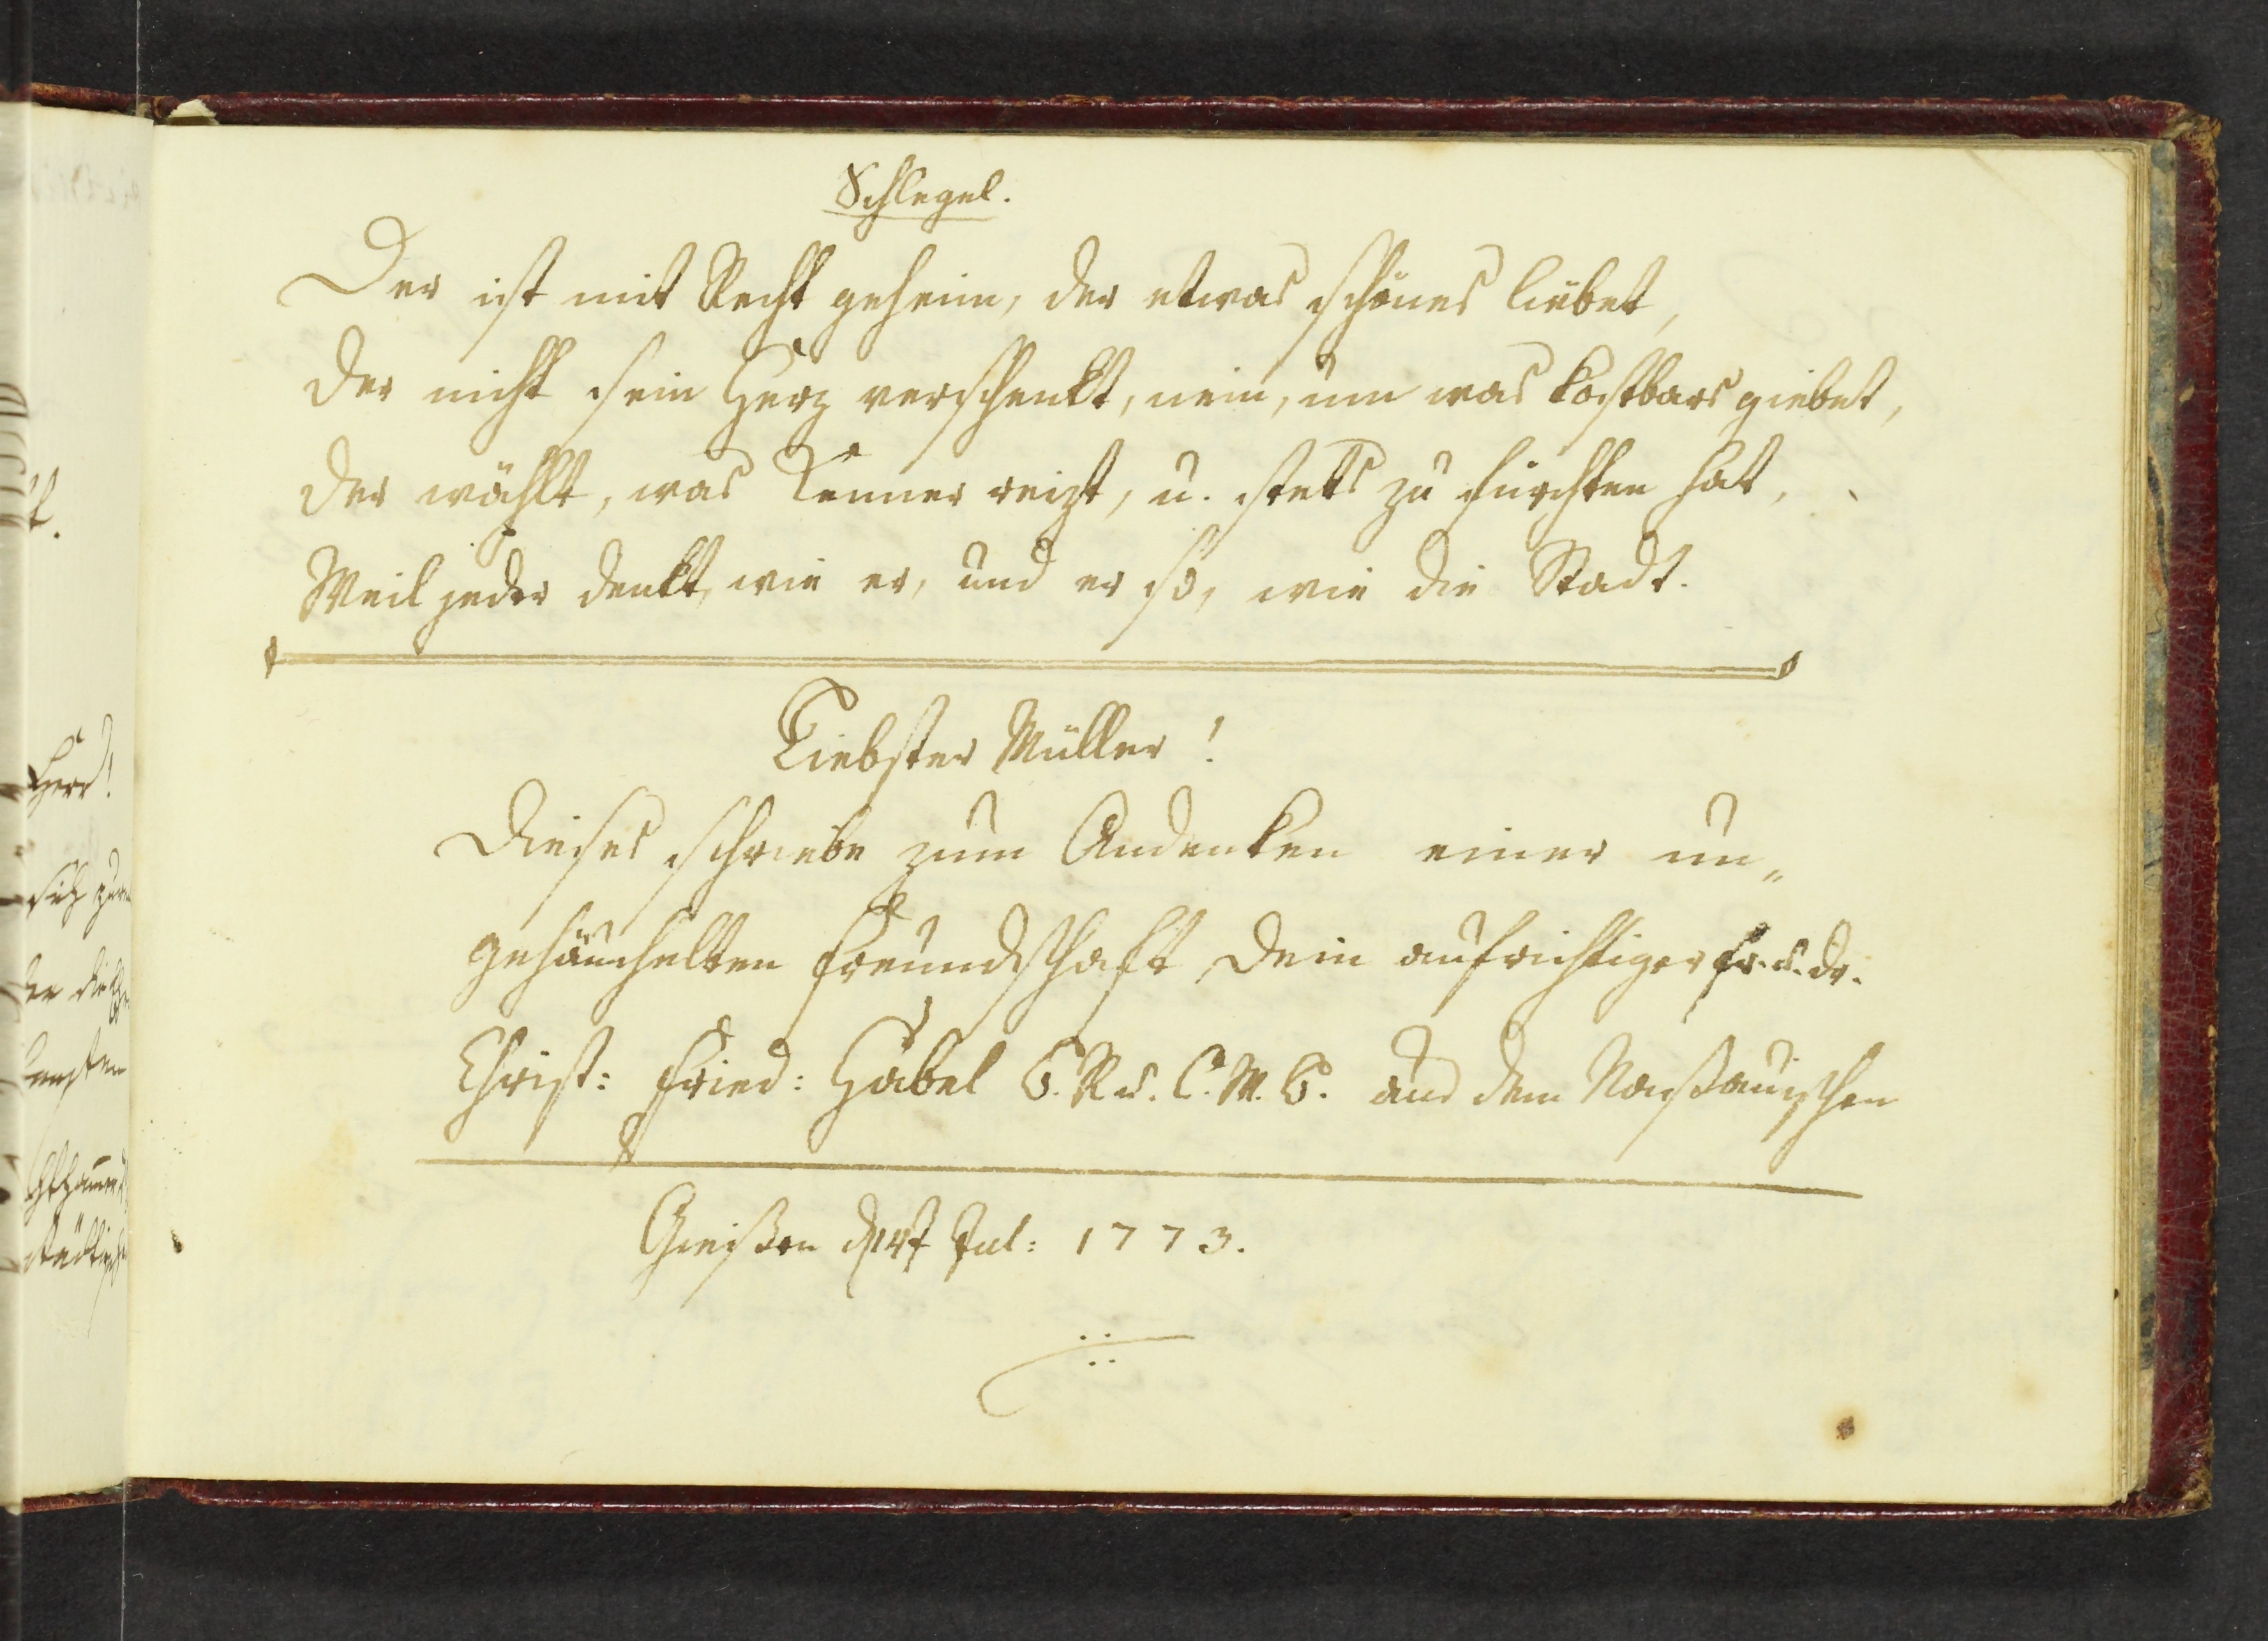 Schlegel.
Der ist mit Recht geheim, der etwas schönes liebet,
der nicht sein Herz verschenkt, nein, um was kostbars giebet,
der wählt, was Kenner reizt, u. stets zu fürchten hat,
Weil jeder denkt, wie er, und er so, wie die Stadt.
Liebster Müller!
Dieses schriebe zum Andenken einer un„
geheuchelten Freundschaft, Dein aufrichtiger fr. u. dr.
Christ: Fried: Habel aus dem Naßauischen
Gießen Jul: 1773.
Herr!